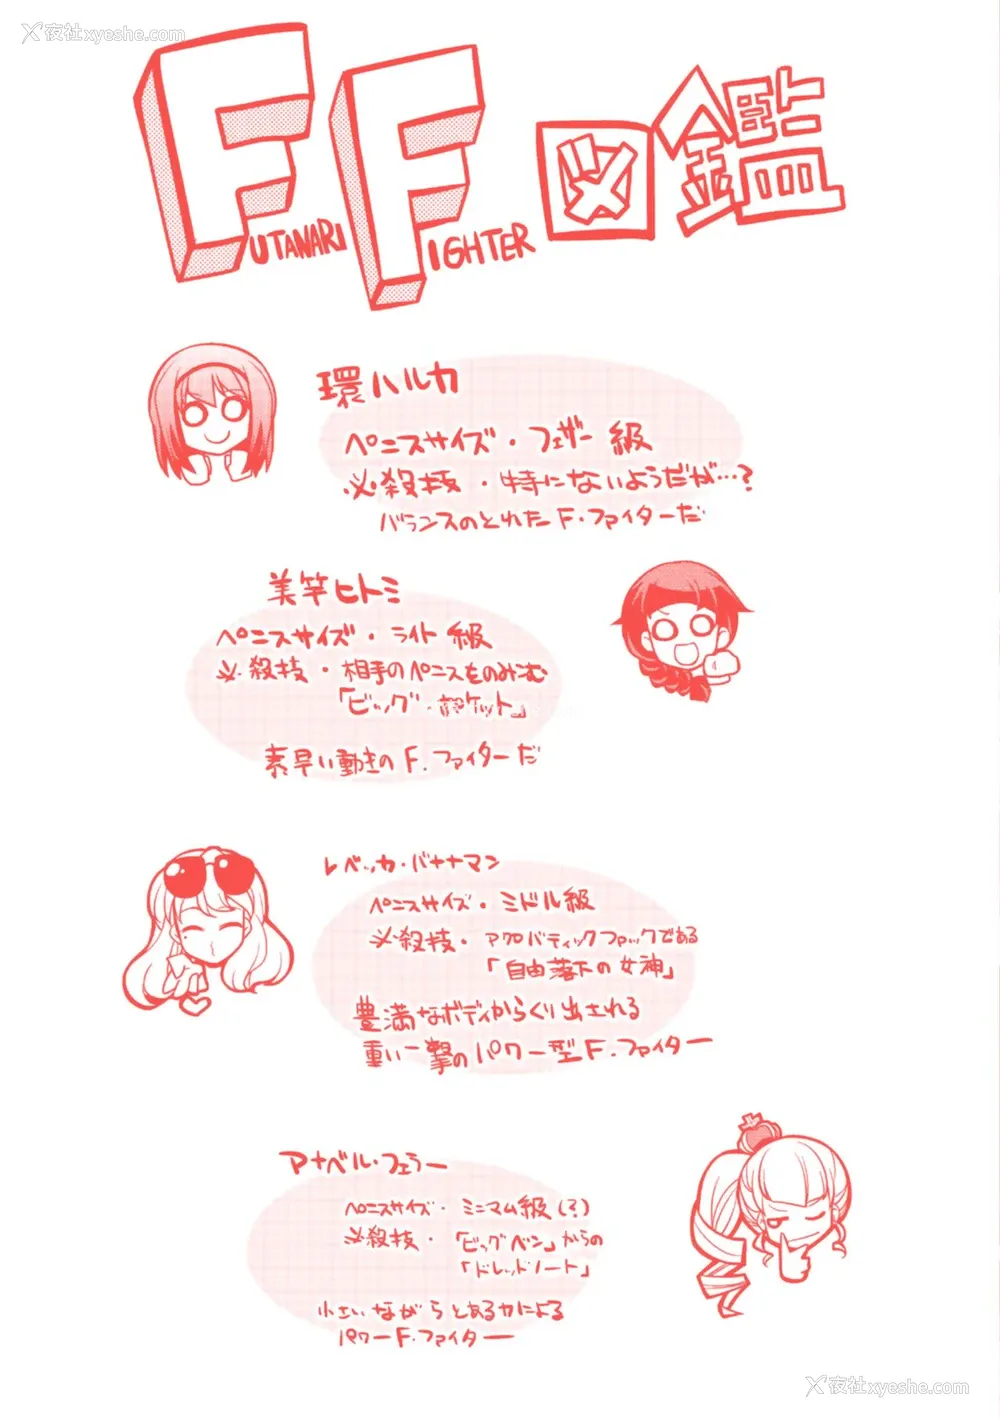 夜社xyeshe.com
FUTANARI FIGHTER 図鑑
環ハルカ
ペニスサイズ・フェザー級
必殺技・特にないようだが…?
バランスのとれたF.ファイターだ
美竿ヒトミ
ペニスサイズ・ライト級
必殺技・相手のペニスをのみこむ
「ビッグ・ポケット」
素早い動きのF.ファイターだ
レベッカ・バナナマン
ペニスサイズ・ミドル級
必殺技・アクロバティックファックである
「自由落下の女神」
豊満なボディからくり出される
重い一撃のパワー型F.ファイター
アナベル・フェラー
ペニスサイズ・ミニマム級(?)
必殺技・「ビッグベン」からの
「ドレッドノート」
小さいながらとある力による
パワーF.ファイター
夜社xyeshe.com